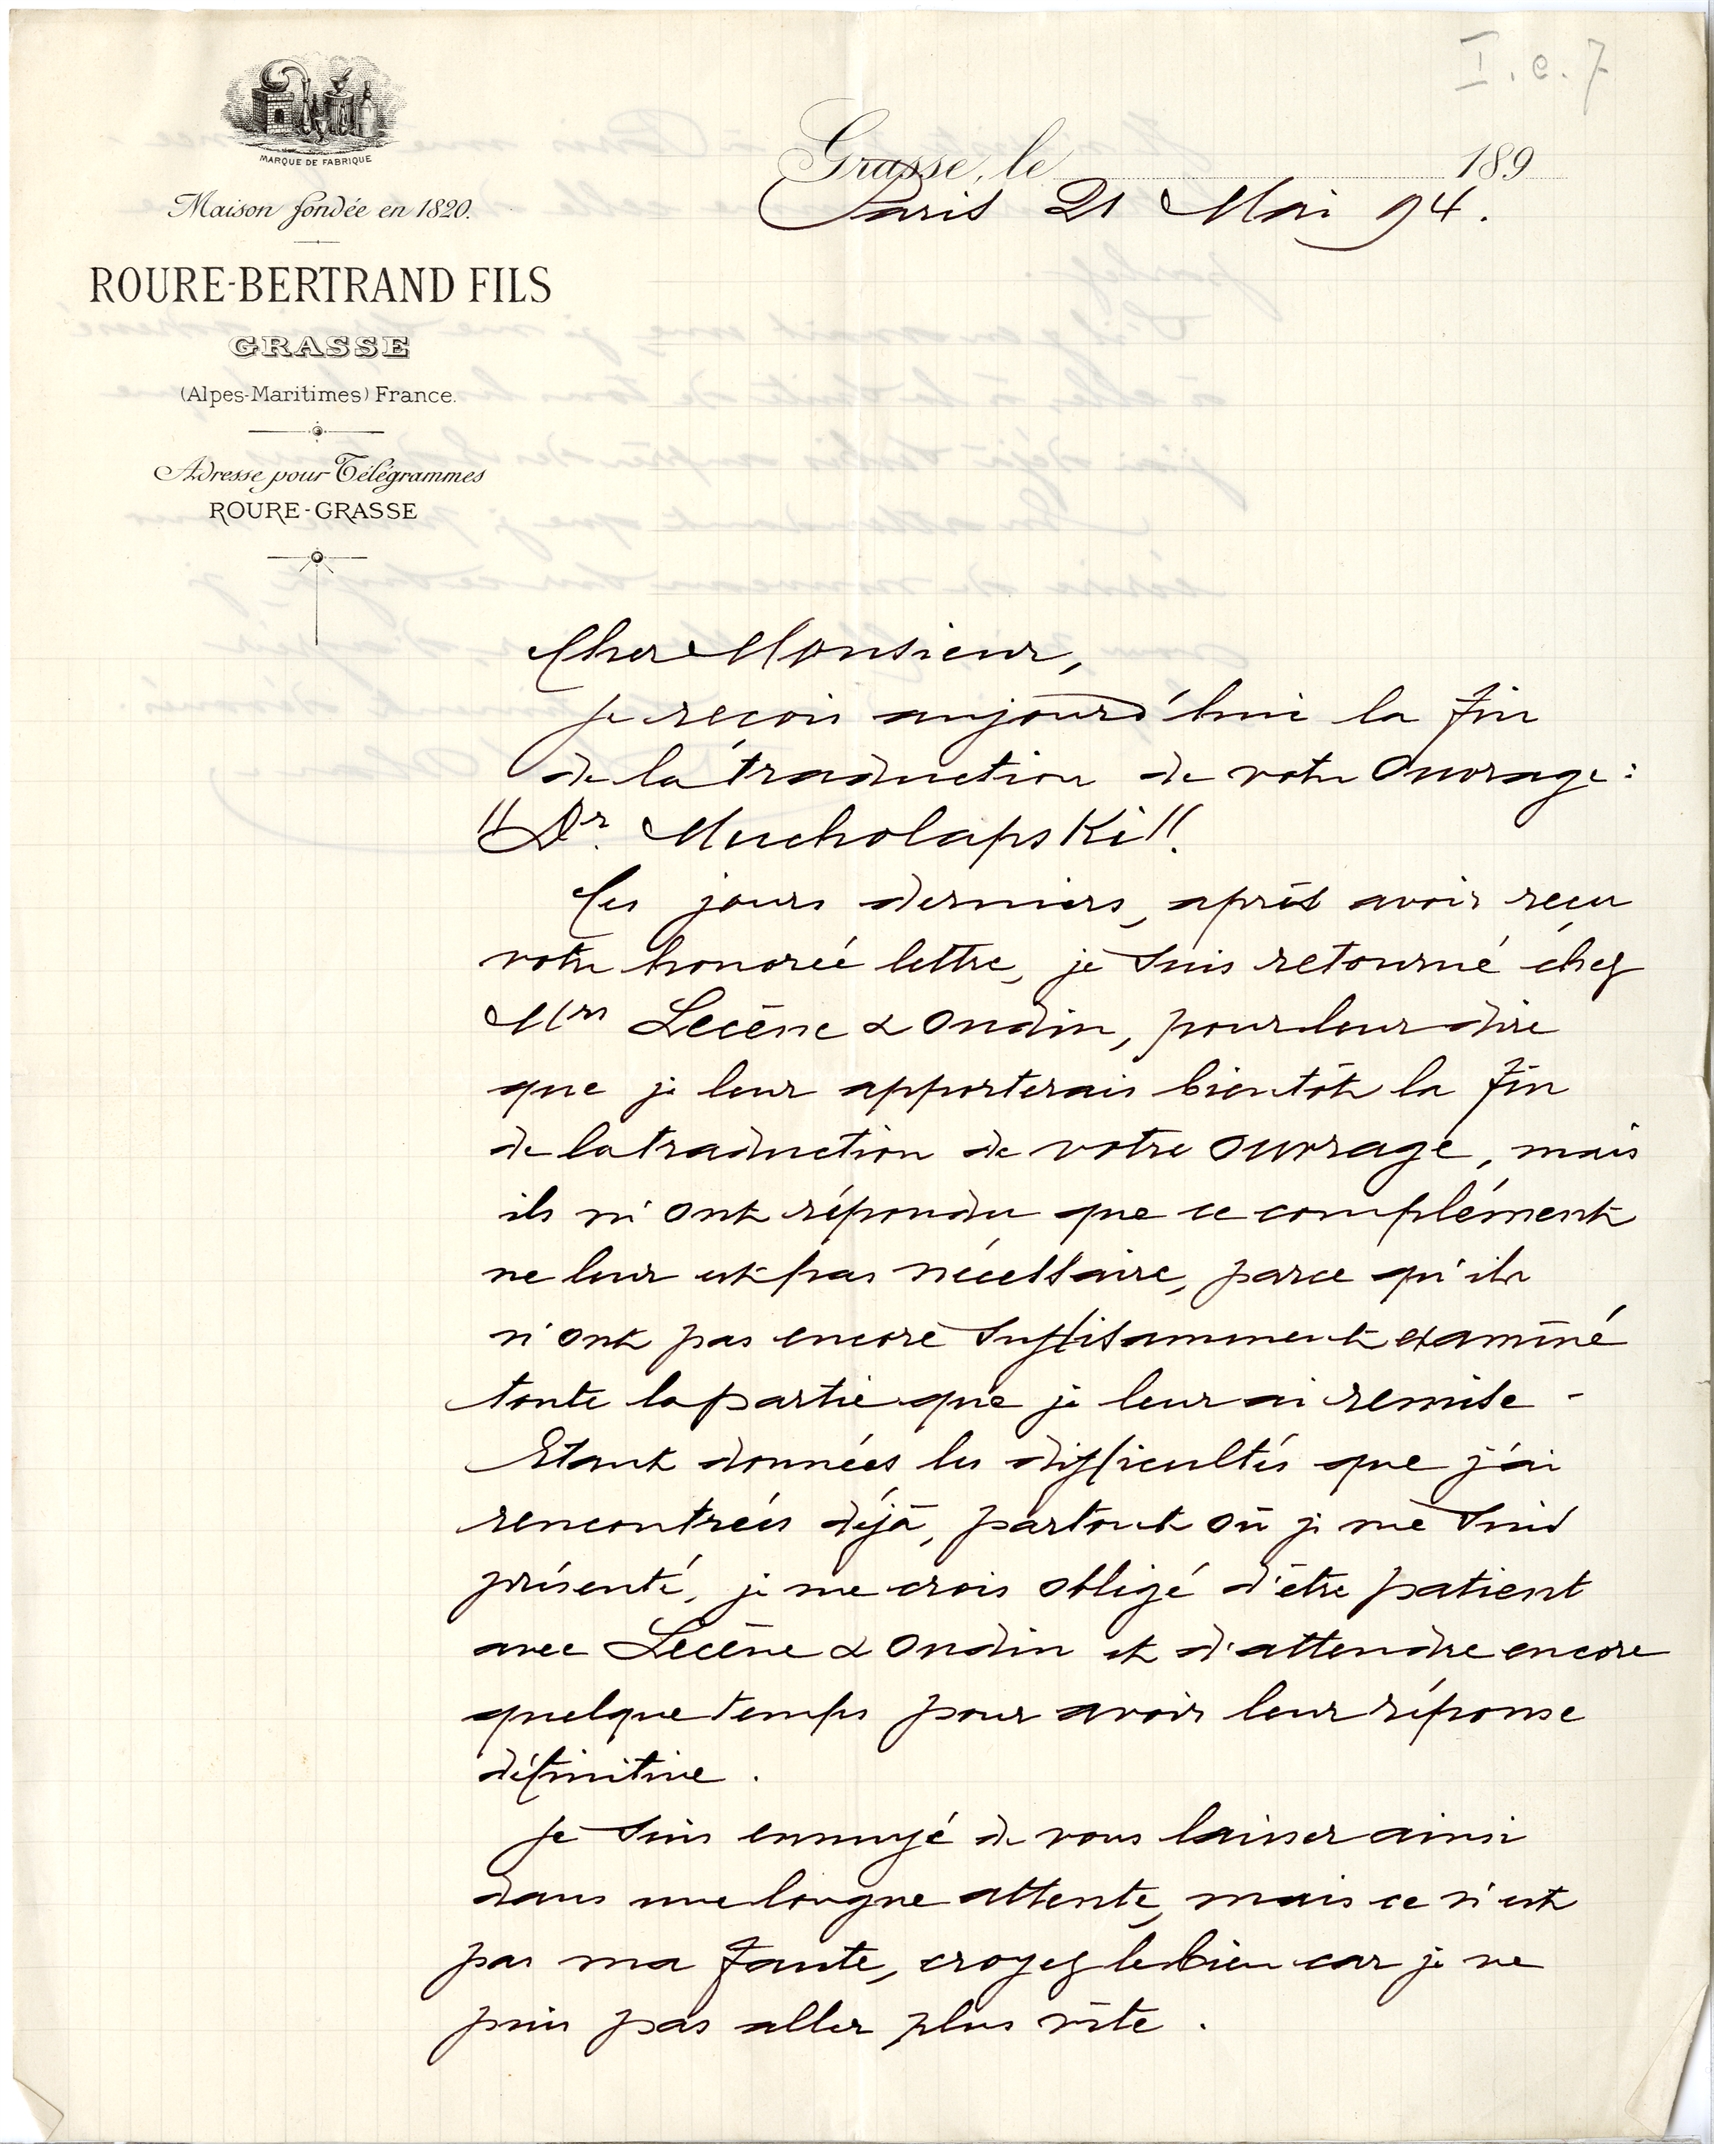 I.e.7
MARQUE DE FABRIQUE
Maison fondée en 1820.
ROURE-BERTRAND FILS
GRASSE
(Alpes-Maritimes) France.
Adresse pour Télégrammes
ROURE-GRASSE
Grasse, le 189
Paris 21 Mai 94.
Cher Monsieur,
je reçois aujourd'hui la fin
de la traduction de votre Ouvrage:
"Dr. Mucholapski".
Ces jours derniers, après avoir reçu
votre honoreé lettre, je suis retourné chez
Mrs Lecène & Oudin, pour leur dire
que je leur apporterais bientôt la fin
de la traduction de votre Ouvrage, mais
ils m'ont répondu que ce complément
ne leur est pas nécessaire, parce qu'ils
n'ont pas encore suffisamment examiné
toute la partie que je leur ai remise -
Etant données les difficultés que j'ai
rencontrées déjà, partout où je me suis
présenté, je me crois obligé d'être patient
avec Lecène & Oudin et d'attendre encore
quelque temps pour avoir leur réponse
définitive.
Je suis ennuyé de vous laisser ainsi
dans une longue attente, mais ce n'est
pas ma faute, croyez le bien car je ne
puis pas aller plus vite.